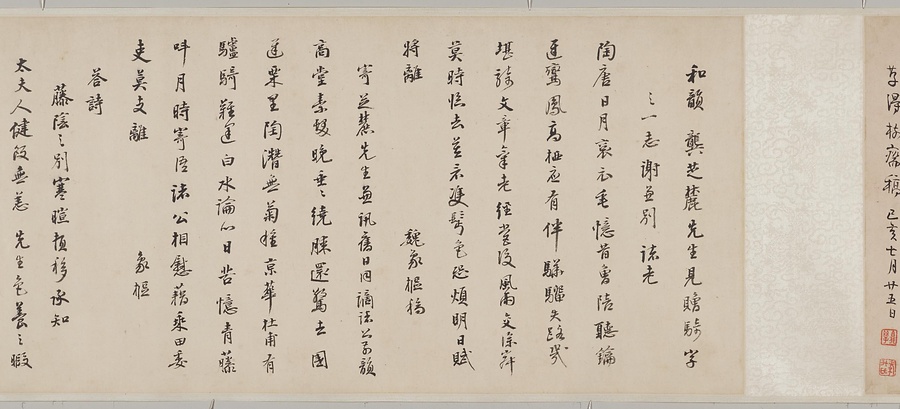 己亥七月廿五日
和韻龔芝麓先生見贈騎字
之一志謝並別諸老
陶唐日月袞衣毛憶昔曾陪聽鑰
近鸞鳳高枝應有伴驊騮失路
堪誇文章氣老經霜後風雨交深
莫時臨去益示雙鬢色從煩明日賦
將離
魏象樞稿
寄芝麓先生並訊舊日同諸公前韻
高堂素髮晚垂垂繞膝還驚去國
遲栗里陶潛無菊種京華杜甫有
驢騎難逢白水論心日苦憶青藤
吽月時寄語諸公相慰藉乘田委
吏莫支離
象樞
答詩
藤陰之別寒暄頻移承知
太夫人健飯無恙先生色養之暇